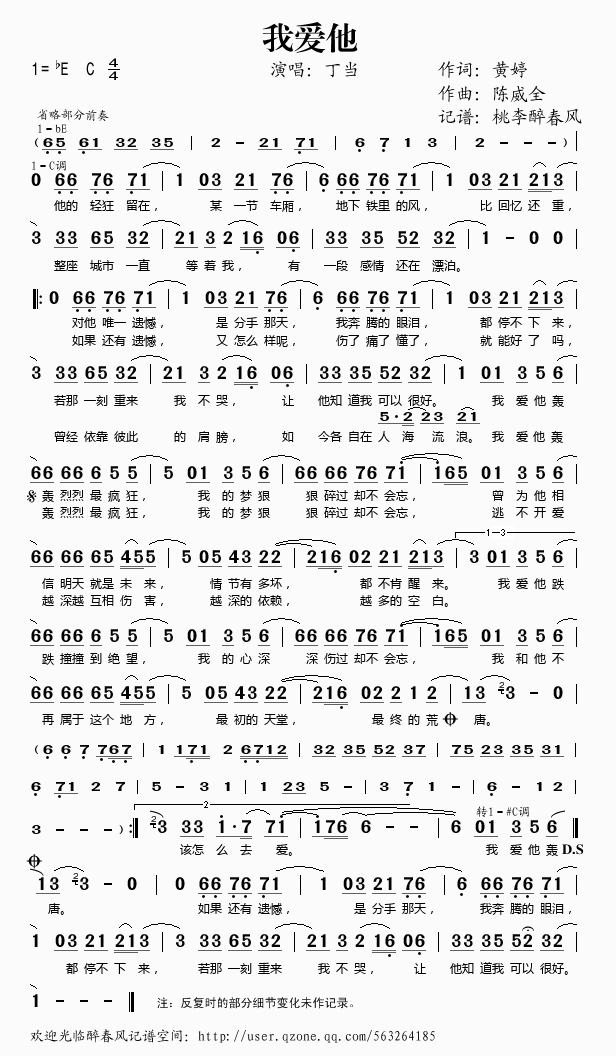 我爱他
1=♭E C 4/4 演唱：丁当 作词：黄婷
作曲：陈威全
省略部分前奏 记谱：桃李醉春风
1-bE
(65 61 32 35 | 2 - 21 71 | 6 7 1 3 | 2 - - - )
1-C调
0 66 76 71 | 1 03 21 76 | 6 66 76 71 | 1 03 21 213
他的 轻狂 留在， 某 一节 车厢， 地下 铁里 的风， 比 回忆 还 重，
3 33 65 32 | 21 3 2 16 06 | 33 35 52 32 | 1 - 0 0
整座 城市 一直 等 着 我， 有 一段 感情 还在 漂泊。
‖: 0 66 76 71 | 1 03 21 76 | 6 66 76 71 | 1 03 21 213
对他 唯一 遗憾， 是 分手 那天， 我奔 腾的 眼泪， 都 停不 下 来，
如果 还有 遗憾， 又 怎么 样呢， 伤了 痛了 懂了， 就 能好 了 吗，
3 33 65 32 | 21 3 2 16 06 | 33 35 52 32 | 1 01 3 5 6
若那 一刻 重来 我 不 哭， 让 他知 道我 可以 很好。 我 爱 他 轰
5·2 23 21
曾经 依靠 彼此 的 肩 膀， 如 今各 自在 人 海 流 浪。 我 爱他 轰
66 66 6 5 5 | 5 01 3 5 6 | 66 66 76 71 | 165 01 3 5 6
𝄋 轰 烈烈 最 疯 狂， 我 的 梦 狠 狠 碎过 却不 会忘， 曾 为 他 相
轰 烈烈 最 疯 狂， 我 的 梦 狠 狠 碎过 却不 会忘， 逃 不 开 爱
1-3
66 66 65 455 | 5 05 43 22 | 216 02 21 213 | 3 01 3 5 6
信 明天 就是 未 来， 情 节有 多坏， 都 不肯 醒 来。 我 爱 他 跌
越 深越 互相 伤 害， 越 深的 依赖， 越 多的 空 白。
66 66 6 5 5 | 5 01 3 5 6 | 66 66 76 71 | 165 01 3 5 6
跌 撞撞 到 绝 望， 我 的 心 深 深伤 过却 不会 忘， 我 和 他 不
66 66 65 455 | 5 05 43 22 | 216 02 2 1 2 | 13 3 - 0
再 属于 这个 地 方， 最 初的 天堂， 最 终 的 荒 唐。
(6 6 7 767 | 1 171 2 6712 | 32 35 52 37 | 75 23 35 31
6 71 2 7 | 5 - 3 1 | 1 23 5 - | 3 7 1 - | 6 - 1 2
2 转1-#C调
3 - - ) :‖ 3 33 1·7 71 | 176 6 - - | 6 01 3 5 6 ‖
该怎 么 去 爱。 我 爱 他 轰 D.S
13 3 - 0 | 0 66 76 71 | 1 03 21 76 | 6 66 76 71
唐。 如果 还有 遗憾， 是 分手 那天， 我奔 腾的 眼泪，
1 03 21 213 | 3 33 65 32 | 21 3 2 16 06 | 33 35 52 32
都 停不 下 来， 若那 一刻 重来 我 不 哭， 让 他知 道我 可以 很好。
1 - - ‖ 注：反复时的部分细节变化未作记录。
欢迎光临醉春风记谱空间：http://user.qzone.qq.com/563264185